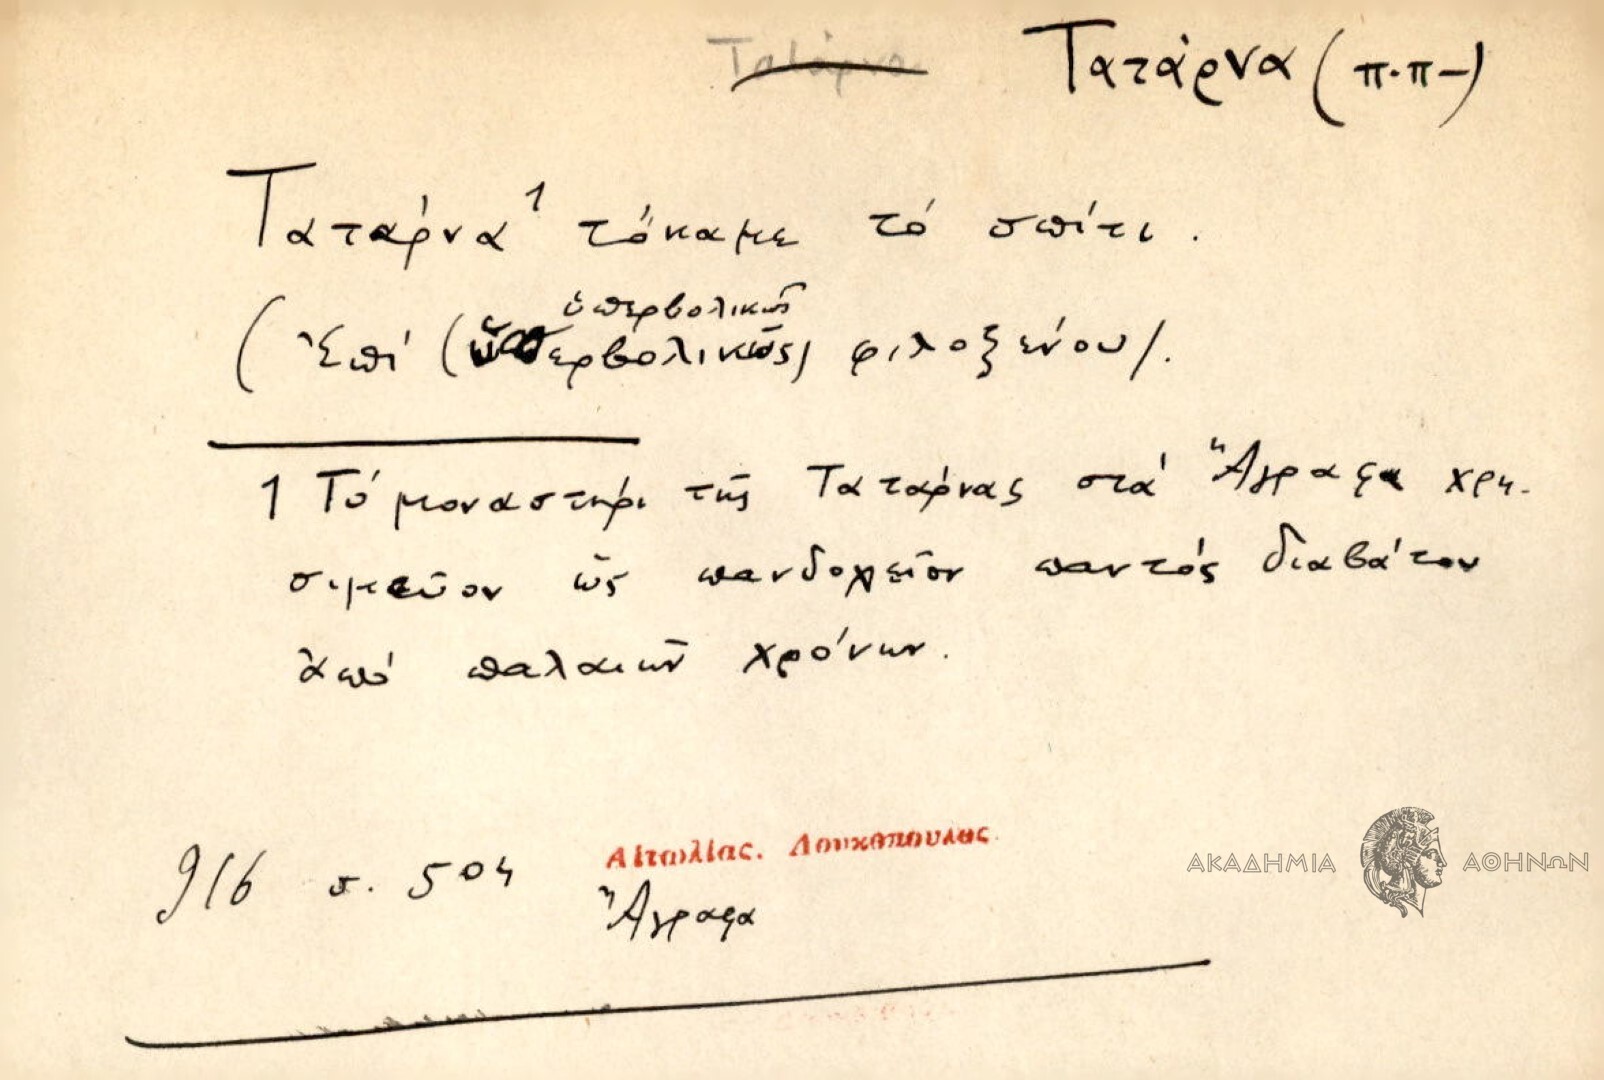 Τατάρνα Τατάρνα (π.π–)
Τατάρνα¹ τόκαμε τό σπίτι.
ὑπερβολικῶς
(Ἐπί (ὑπερβολικῶς) φιλοξένου).
1 Τό μοναστήρι τῆς Τατάρνας στά Ἄγραφα χρη-
σιμεῦον ὡς πανδοχεῖον παντός διαβάτου
ἀπό παλαιῶν χρόνων.
916 σ. 504 Αἰτωλίας. Λουκόπουλος
Ἄγραφα
ΑΚΑΔΗΜΙΑ ΑΘΗΝΩΝ